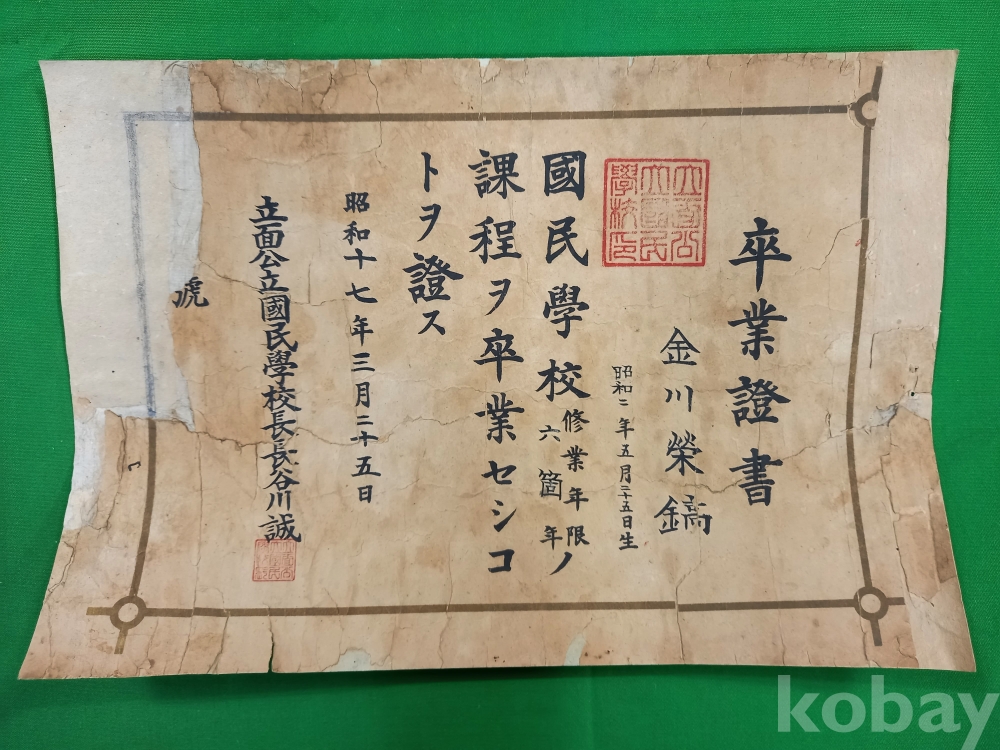 卒業證書
金川榮鎬
昭和二年五月二十五日生
國民學校修業年限六箇年ノ
課程ヲ卒業セシコ
トヲ證ス
昭和十七年三月二十五日
立面公立國民學校長長谷川誠
號
kobay